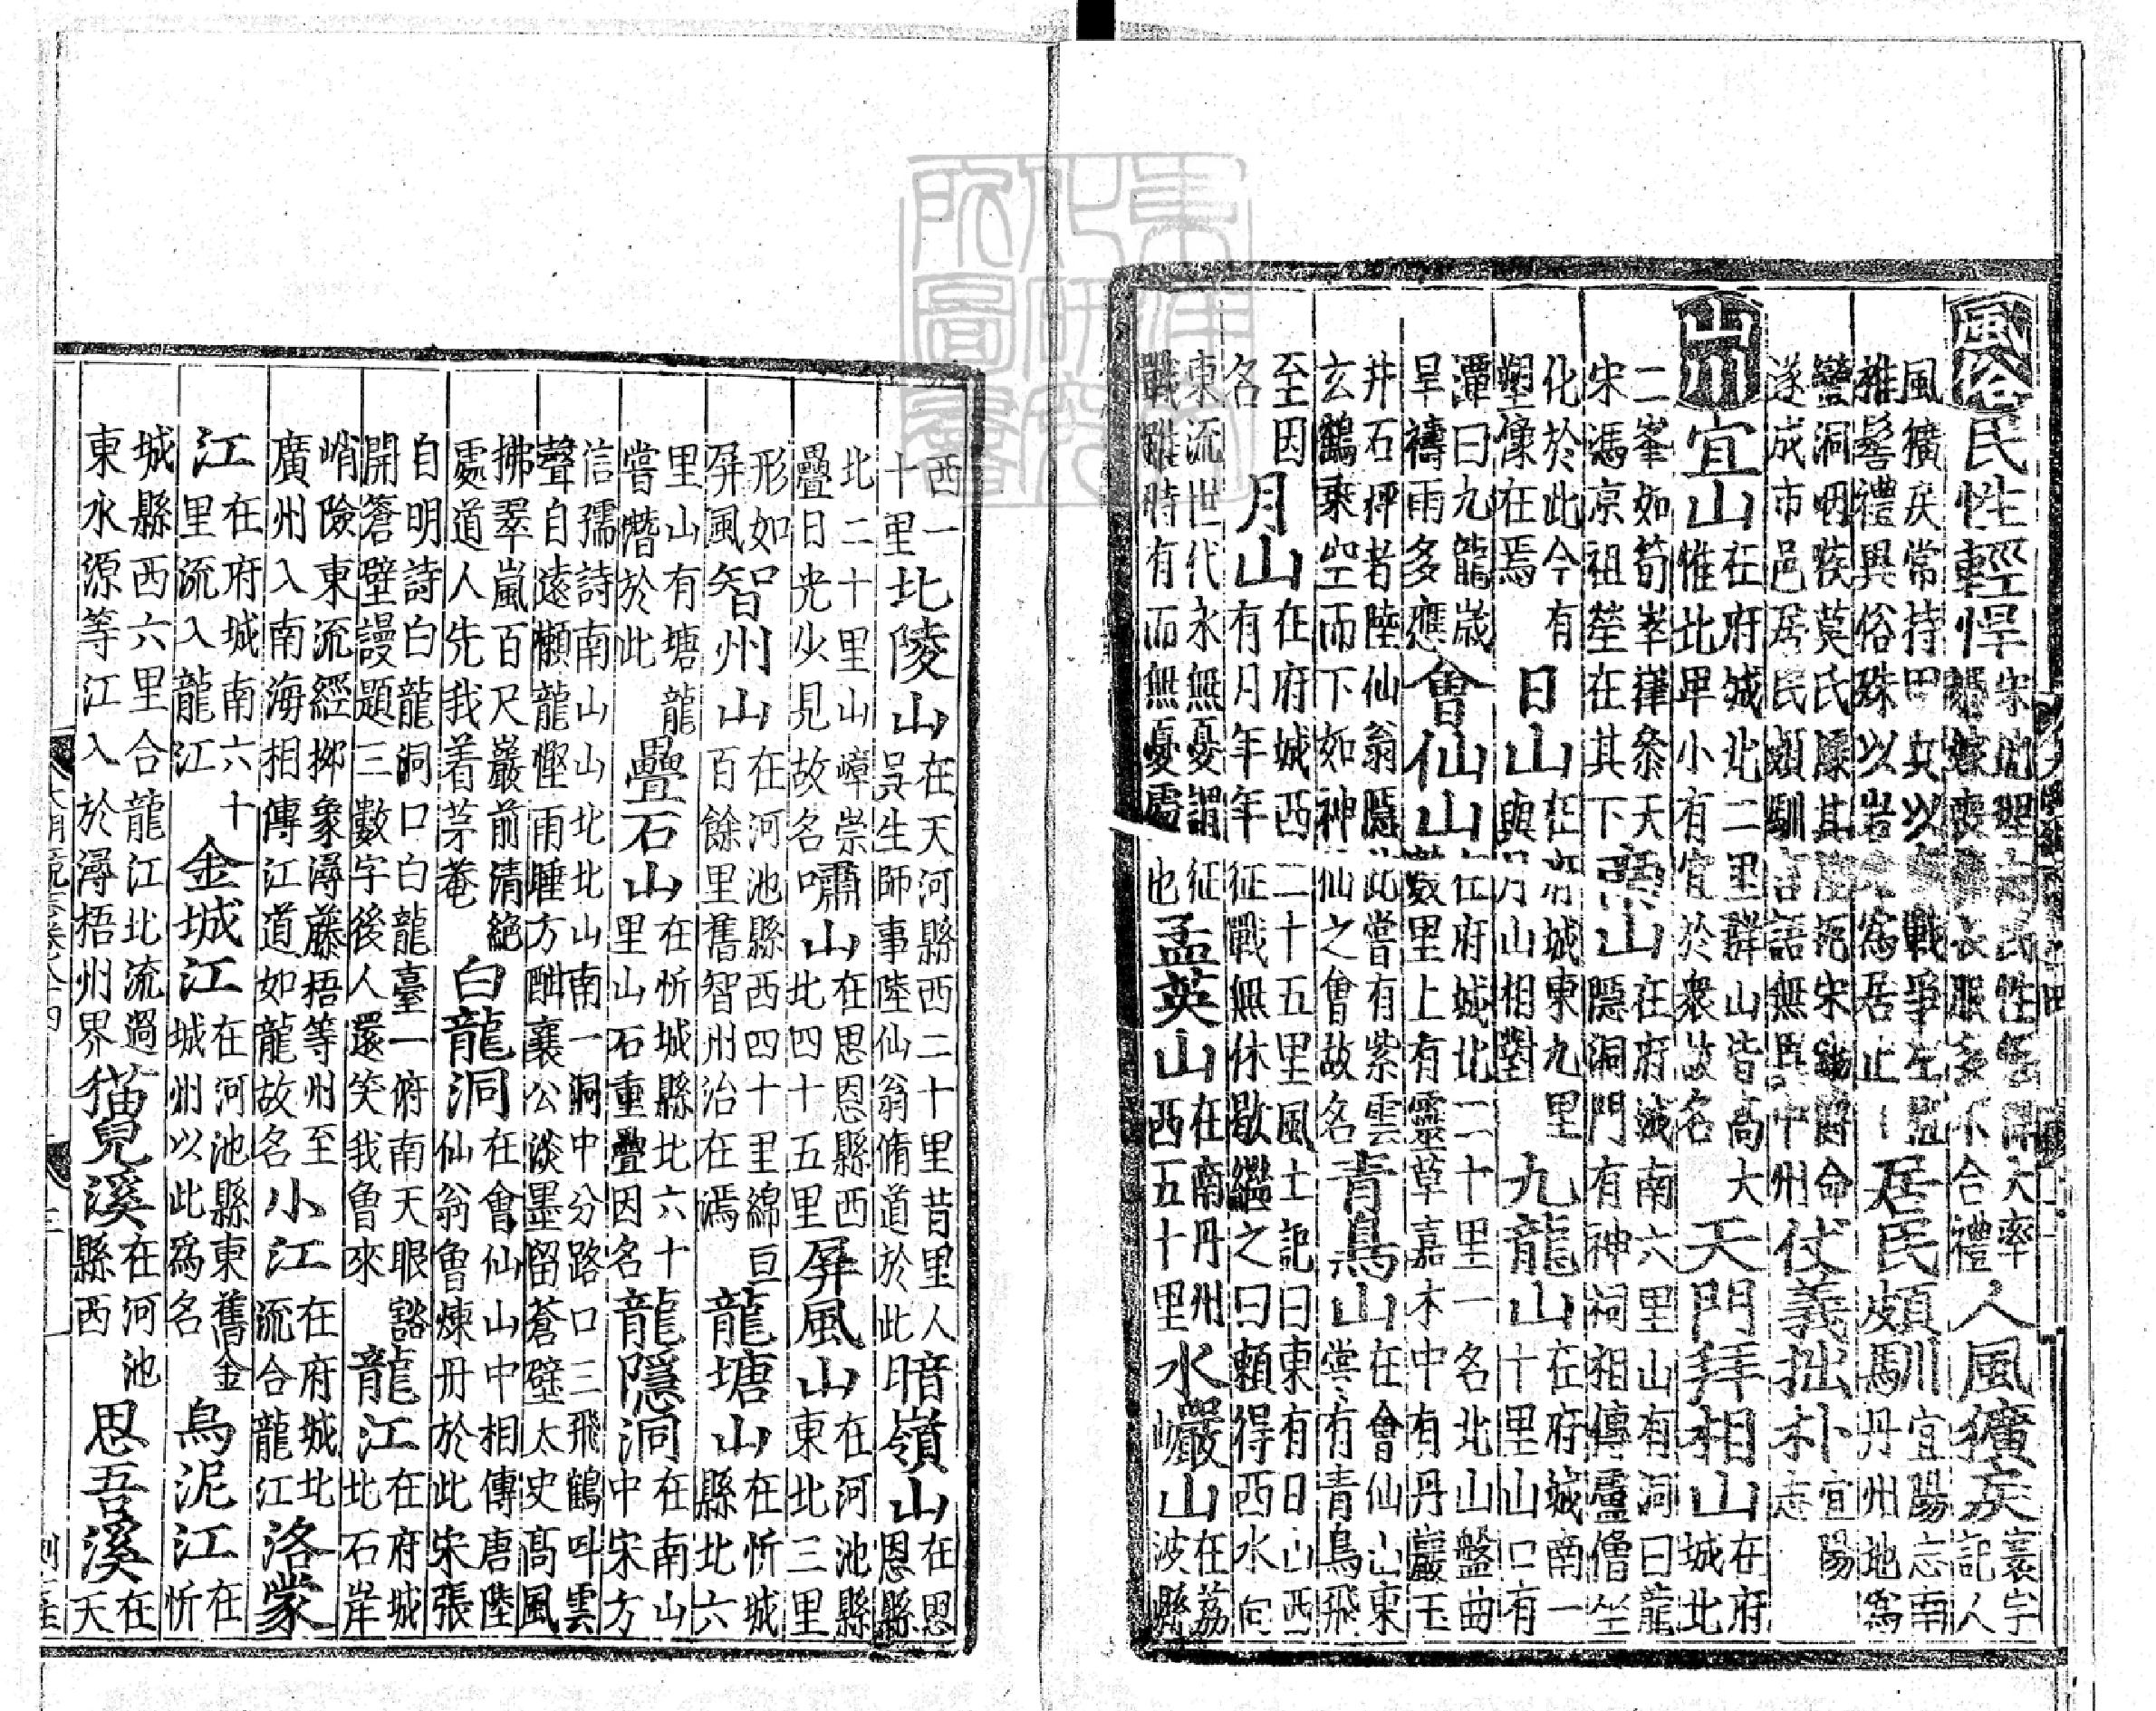 風俗民性輕悍宋地理志民性輕悍大率婚嫁喪葬衣服多不合禮人風獷戾寰宇記人
風獷戾常持田力以戰爭左衽椎髻禮異俗殊以岩穴為居止居民頗馴宜陽志南皮馬丹州地爲
蠻洞咽疾莫氏宋命遂成市邑居民頗馴言語無異中州仗義拙朴宜陽志
山川宜山在府城北二里群山皆高大惟此卑小有宜於衆故名天門拜相山在府城北
二峯如筍崒嵂叅天宋馮京祖塋在其下山在府城南六里山有洞曰龍隱洞門有神祠相傳盧僧坐
化於此今有塑像在焉日山在府城東九里與月山相對九龍山在府城南一十里山口有
潭曰九龍歲旱禱雨多應會仙山在府城北一十里一名北山盤曲數里上有靈草嘉木中有丹竈玉
井石枰者陸仙翁隱此嘗有紫雲玄鶴乘空而下如神仙之會故名青鳥山在會仙山東嘗有青鳥飛
至因名月山在府城西二十五里風土記曰東有日山西有月年年征戰無休歇繼之曰賴得西水向
東流世代永無憂謂征戰雖時有而無憂處也孟英山在南丹州西五十里水巖山在荔波縣
西一十里北陵山在天河縣西二十里昔里人吳生師事陸仙翁脩道於此暗嶺山在恩恩縣
北二十里山嶂崇疊日光少見故名嘯山在思恩縣西北四十五里屏風山在河池縣東北三里
形如屏風智州山在河池縣西四十里綿亘百餘里舊智州治在焉龍塘山在忻城縣北六
里山有塘龍嘗潛於此疊石山在忻城縣北六十里山石重疊因名龍隱洞在南山中宋方
信孺詩南山山北北山南一洞中分路口三飛鶴叫雲聲自遠懶龍慳雨睡方酣襄公淡墨留蒼壁太史高風
拂翠嵐百尺巖前清絕處道人先我着茅菴白龍洞在會仙山中相傳唐陸仙翁魯煉丹於此宋張
自明詩白白龍洞口白龍臺一俯南天眼豁開蒼壁謾題三數字後人還笑我魯來龍江在府城北石岸
峭險東流經柳象潯藤梧等州至廣州入南海相傳江道如龍故名小江在府城北流合龍江洛蒙
江在府城南六十里流入龍江金城江在河池縣東舊金城州以此爲名烏泥江在忻
城縣西六里合龍江北流過東水源等江入於潯梧州界猫兒溪在河池縣西思吾溪在天